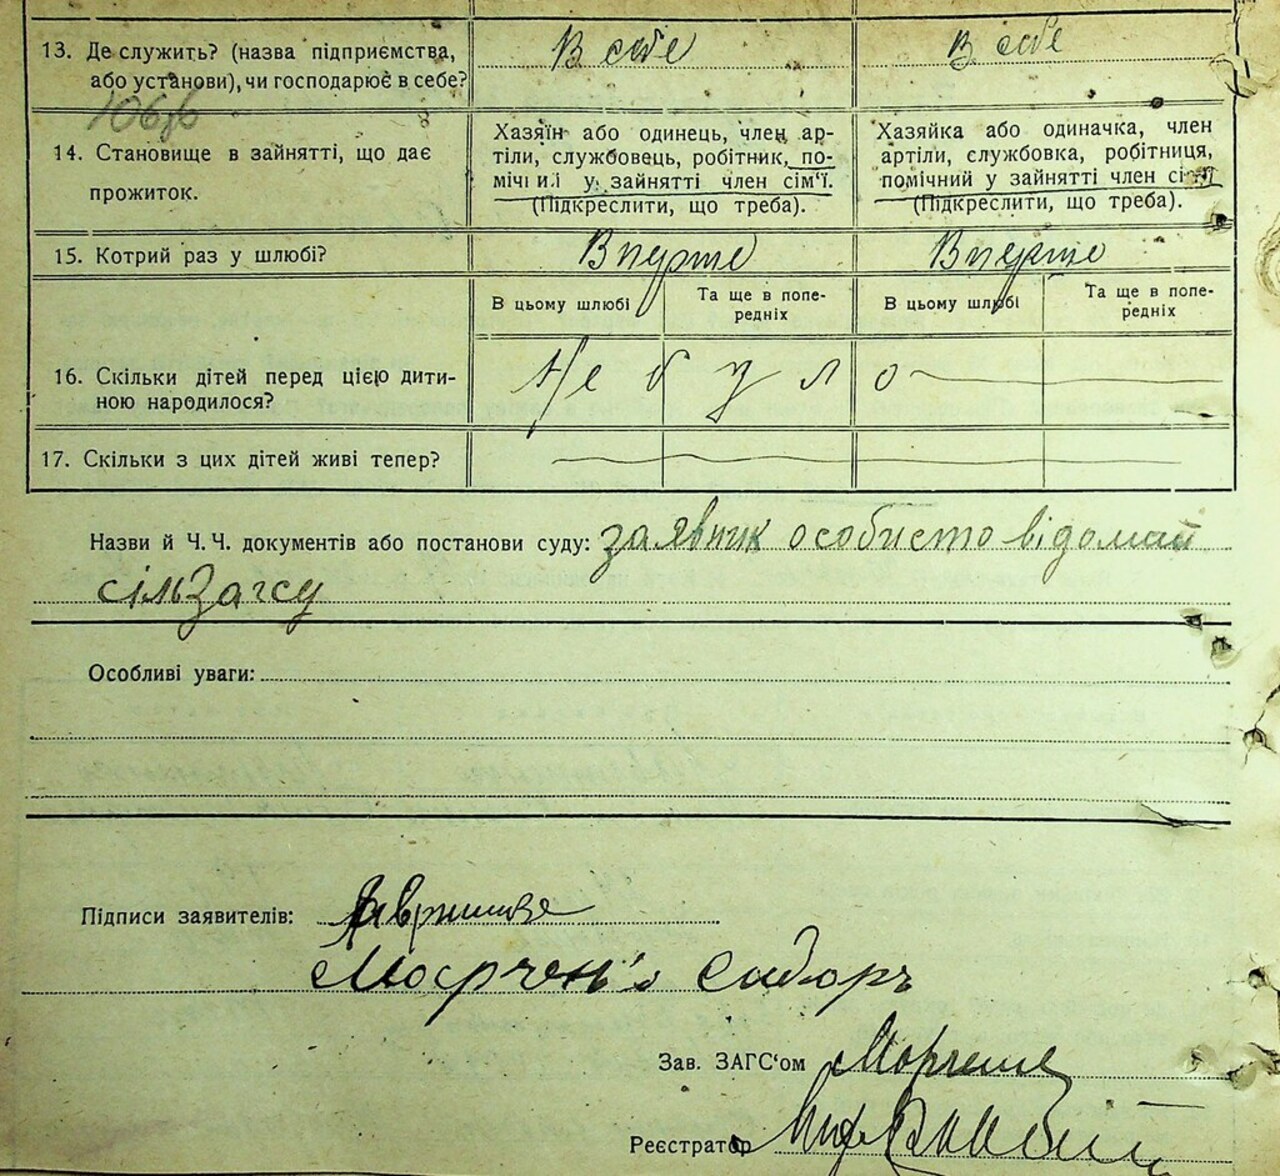 13. Де служить? (назва підприємства, або установи), чи господарює в себе?
В себе
В себе
14. Становище в зайнятті, що дає прожиток.
Хазяїн або одинець, член ар-
тіли, службовець, робітник, по-
мічний у зайнятті член сім'ї.
(Підкреслити, що треба).
Хазяйка або одиначка, член
артіли, службовка, робітниця,
помічний у зайнятті член сім'ї
(Підкреслити, що треба).
15. Котрий раз у шлюбі?
Вперше
Вперше
В цьому шлюбі
Та ще в попе-
редніх
В цьому шлюбі
Та ще в попе-
редніх
16. Скільки дітей перед цією дити-
ною народилося?
Не було
17. Скільки з цих дітей живі тепер?
Назви й Ч. Ч. документів або постанови суду: заявник особисто відомай
сільзагсу
Особливі уваги:
Підписи заявителів:
Зав. ЗАГС'ом
Реєстратор